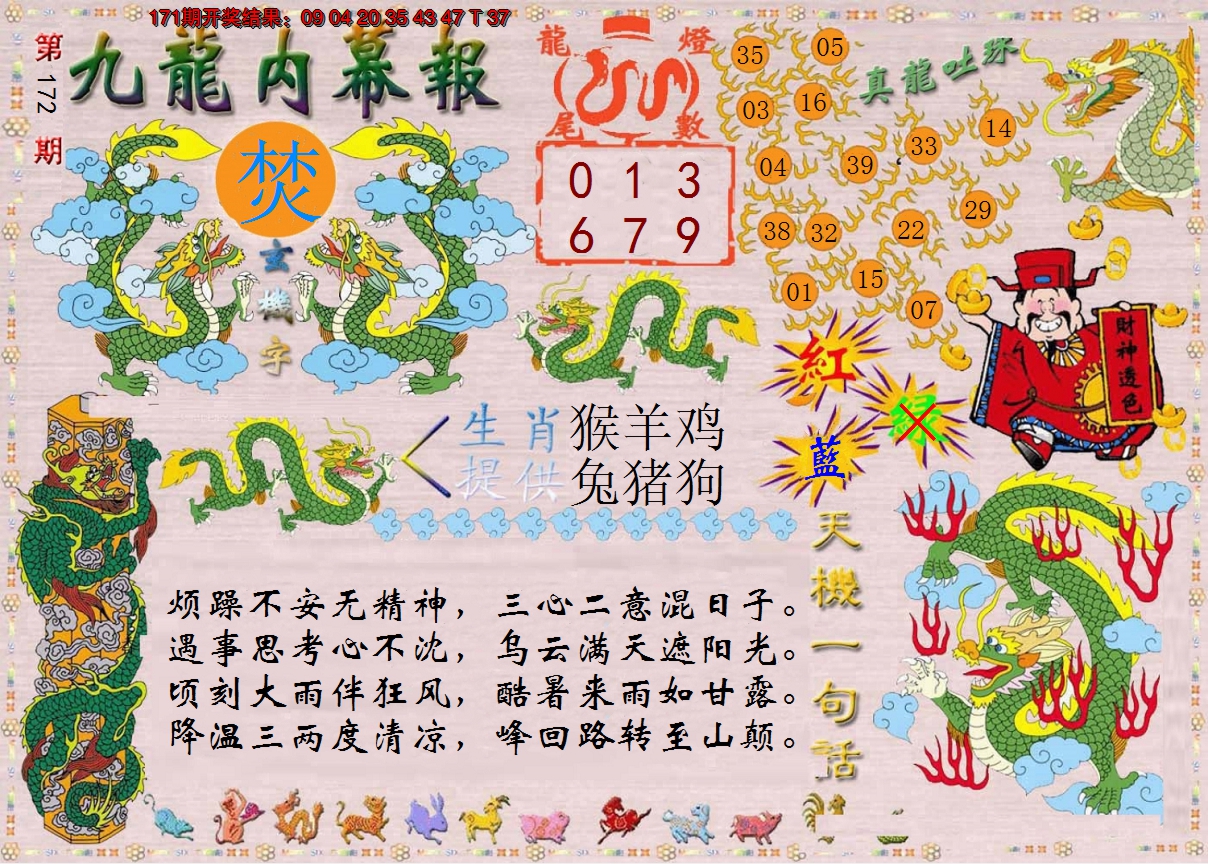 171期开奖结果：09 04 20 35 43 47 T 37
第172期
九龍内幕報
焚
玄機字
龍燈
尾數
0 1 3
6 7 9
真龍吐珠
35 05
03 16
04 39 33 14
38 32 22 29
01 15 07
財神透色
紅
绿
藍
生肖 猴羊鸡
提供 兔猪狗
天機一句話
烦躁不安无精神，三心二意混日子。
遇事思考心不沈，乌云满天遮阳光。
顷刻大雨伴狂风，酷暑来雨如甘露。
降温三两度清凉，峰回路转至山颠。